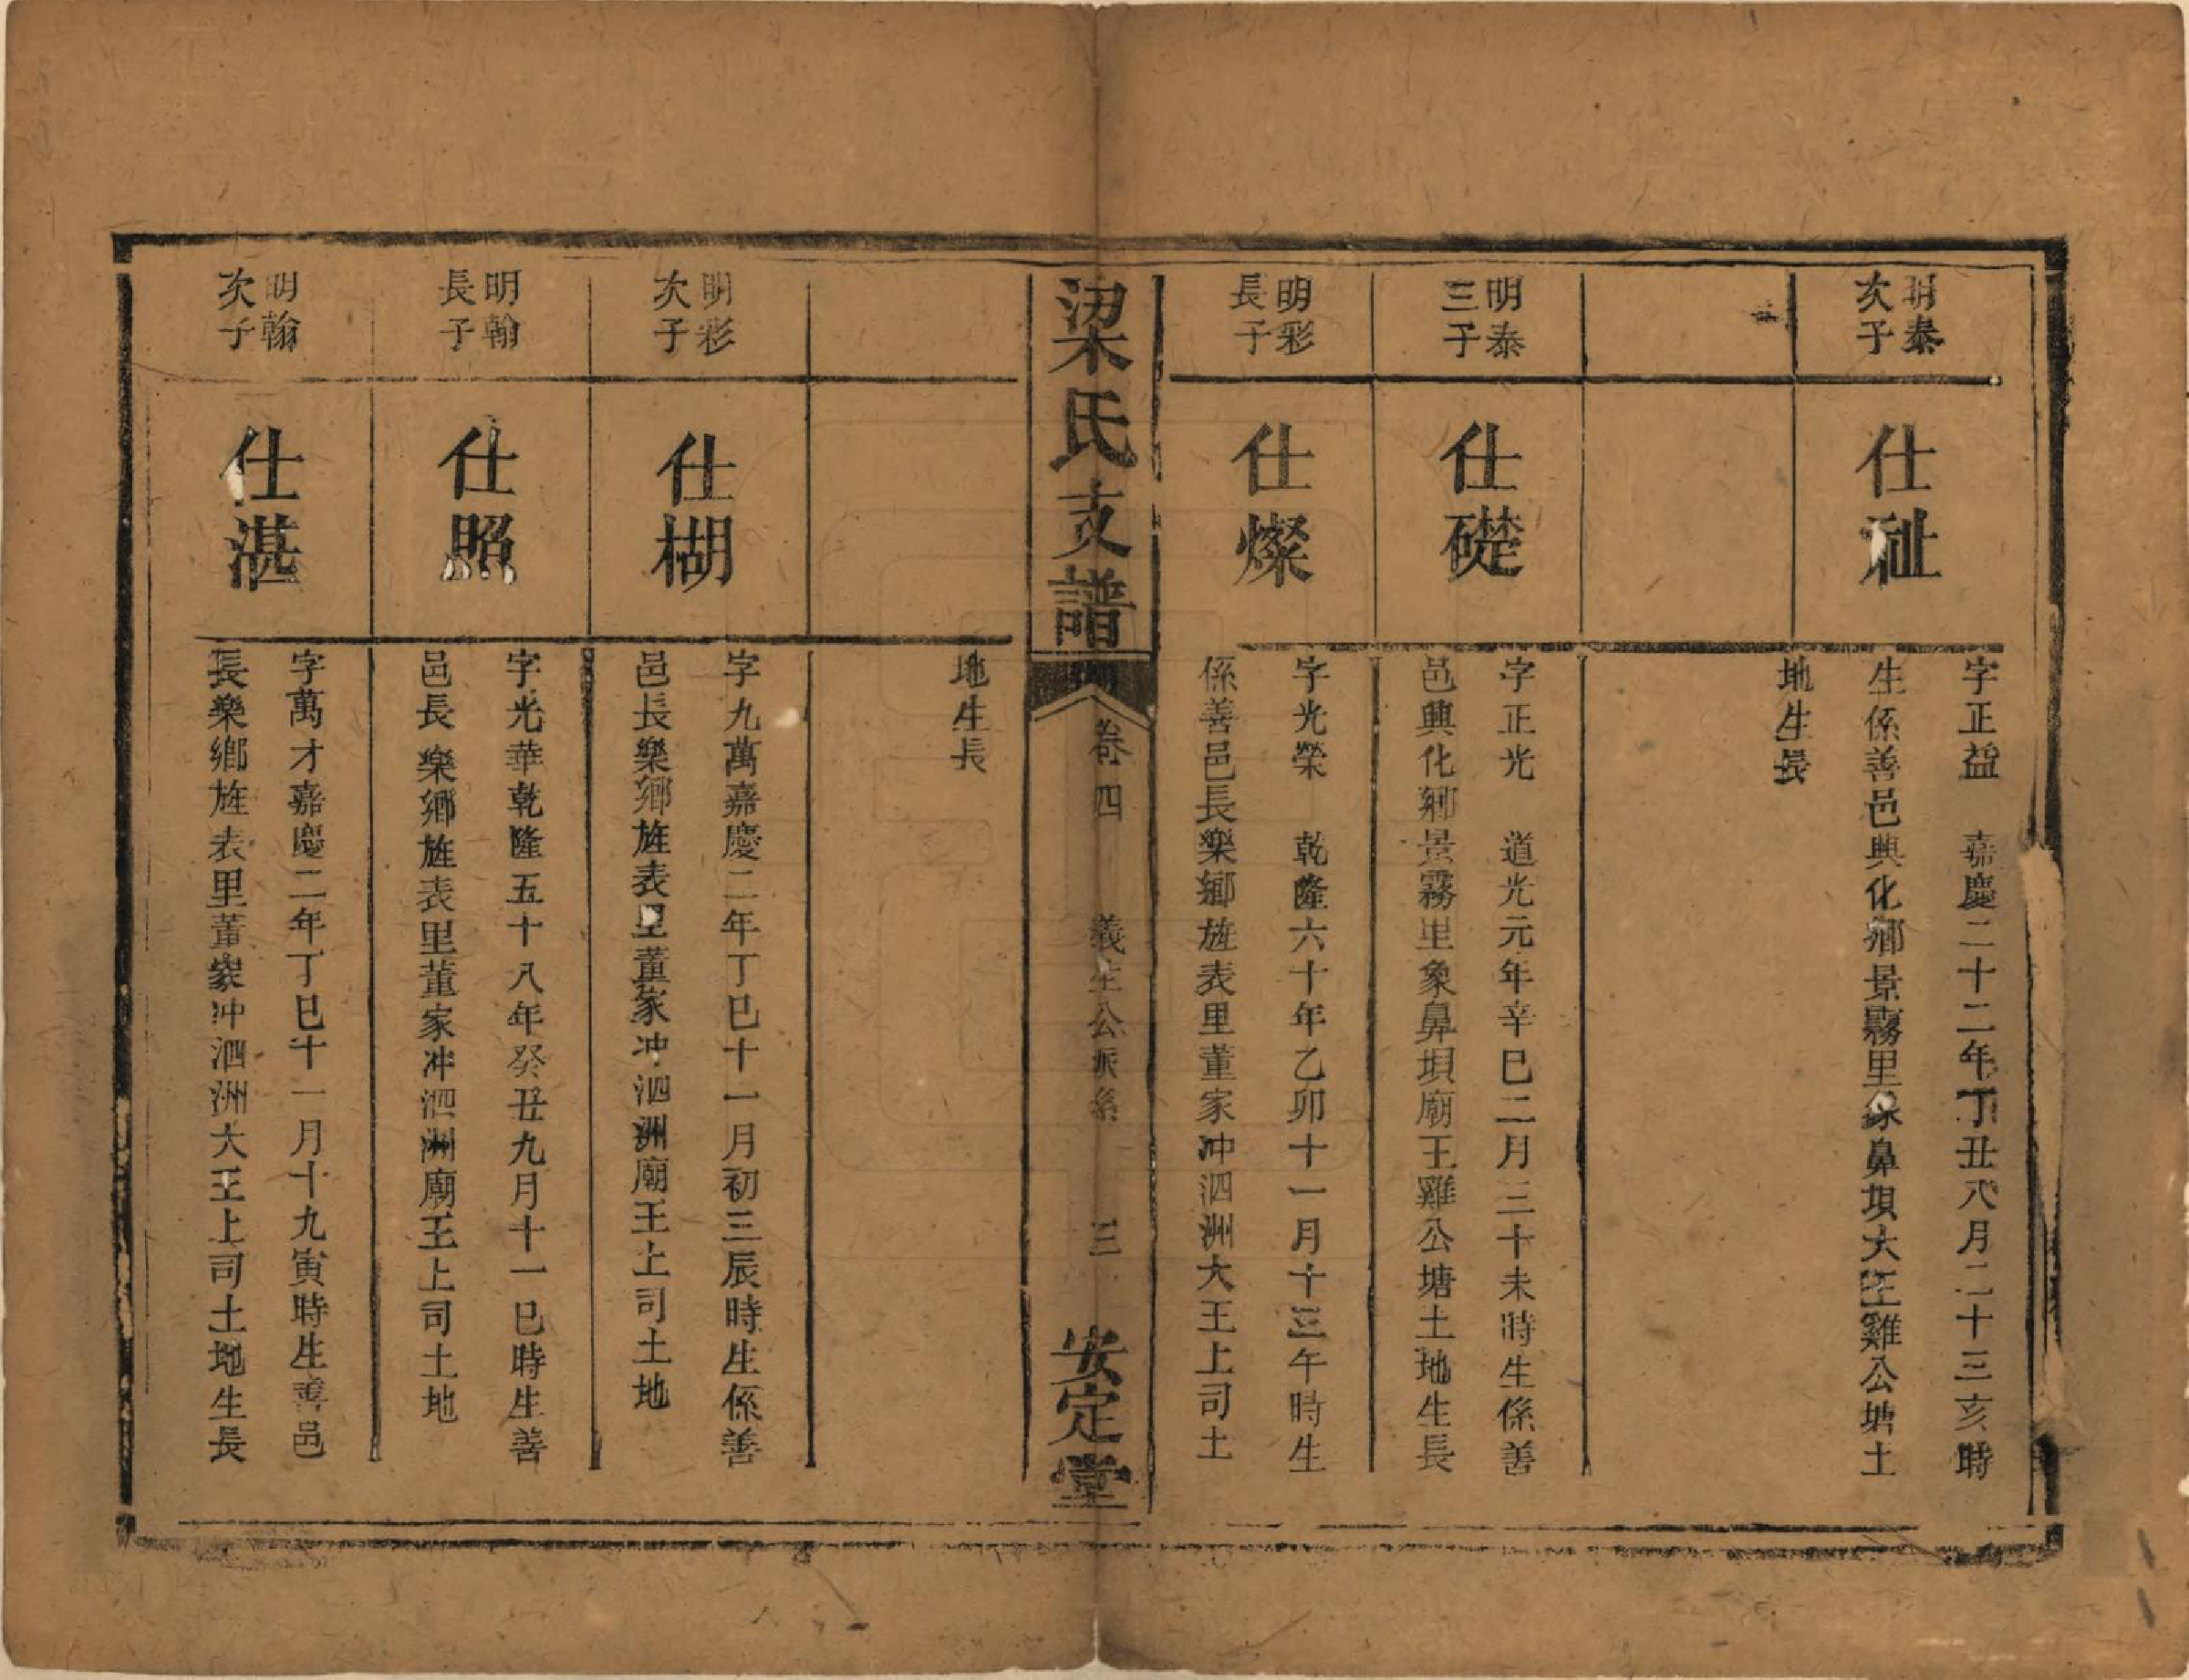 明泰
次子
仕祉
字正益　嘉慶二十二年丁丑八月二十三亥時
生係善邑興化鄉景霧里象鼻垻大王雞公塘土
地生長
明泰
三子
仕礎
字正光　道光元年辛巳二月三十未時生係善
邑興化鄉景霧里象鼻垻廟王雞公塘土地生長
明彩
長子
仕燦
字光榮　乾隆六十年乙卯十一月十三午時生
係善邑長樂鄉旌表里董家冲泗洲大王上司土
梁氏支譜
卷四
義生公派系
三
安定堂
地生長
明彩
次子
仕楜
字九萬嘉慶二年丁巳十一月初三辰時生係善
邑長樂鄉旌表里董家冲泗洲廟王上司土地
明翰
長子
仕照
字光華乾隆五十八年癸丑九月十一巳時生善
邑長樂鄉旌表里董家冲泗洲廟王上司土地
明翰
次子
仕湛
字萬才嘉慶二年丁巳十一月十九寅時生善邑
長樂鄉旌表里董家冲泗洲大王上司土地生長